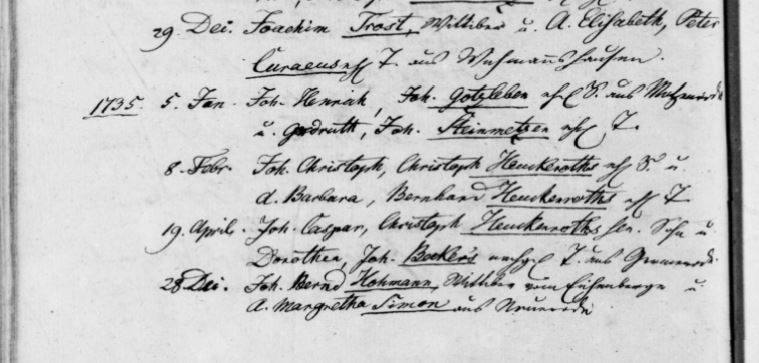 29. Dei. Joachim Trost, Wittiber u. A. Elisabeth, Peter
Curaeus ehl T. aus
1735. 5. Jan. Joh. Henrich, Joh. Gotzleben ehl S. aus
u. Gerdruth, Joh. Steinmetzen ehl T.
8. Febr. Joh. Christoph, Christoph Heuckeroths ehl S. u.
A. Barbara, Bernhard Heuckenroths ehl T.
19. April. Joh. Caspar, Christoph Heuckenroths sen. Sohn u.
Dorothea, Joh. Beckers T. aus
28 Dei. Joh. Bernd Hohmann, Wittiber vom u.
A. Margretha Simon aus